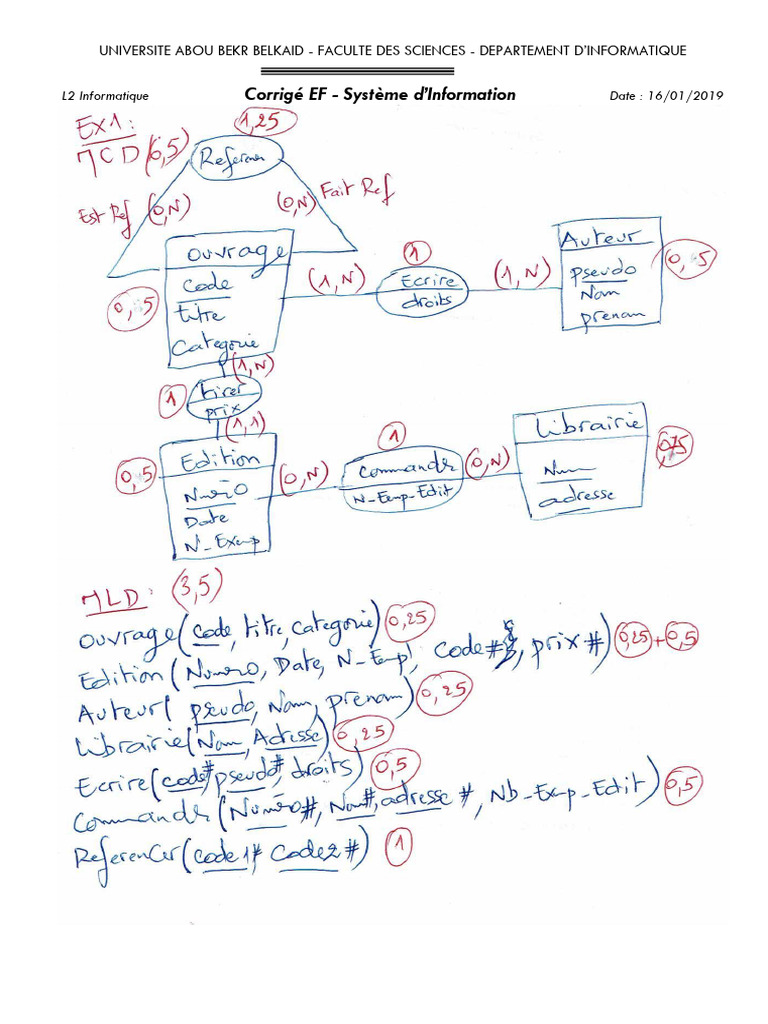 UNIVERSITE ABOU BEKR BELKAID - FACULTE DES SCIENCES - DEPARTEMENT D'INFORMATIQUE
L2 Informatique Corrigé EF - Système d'Information Date : 16/01/2019
Ex1:
MCD (6,5)
1,25
Referencer
Est Ref (0,N)
(0,N) Fait Ref
Ouvrage
Code
titre
Categorie
0,5
(1,N)
1
Ecrire
droits
(1,N)
Auteur
pseudo
Nom
prenom
0,5
(1,N)
1
tirer
prix
(1,1)
Edition
Numéro
Date
N_Exemp
0,5
(0,N)
1
Commander
N_Exemp_Edit
(0,N)
Librairie
Nom
adresse
MLD: (3,5)
Ouvrage(code, titre, categorie) 0,25
Edition(Numéro, Date, N_Exmp, code#, prix#) 0,25 + 0,5
Auteur(pseudo, Nom, prenom) 0,25
Librairie(Nom, Adresse) 0,25
Ecrire(code#, pseudo#, droits) 0,5
Commander(Numéro#, Nom#, adresse#, Nb_Exmp_Edit) 0,5
Referencer(code1# Code2#) 1